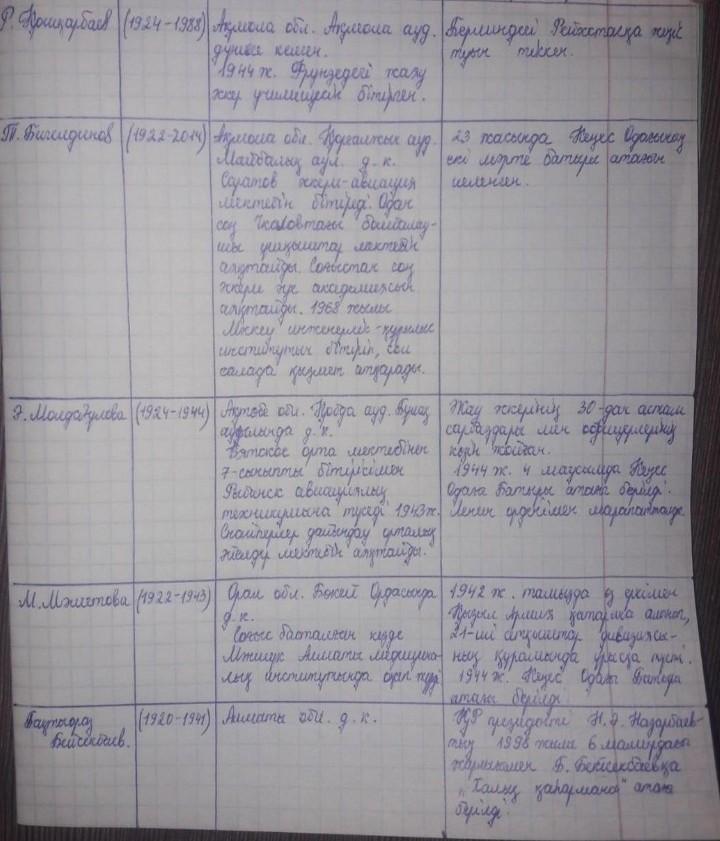 Р. Қошқарбаев
(1924-1988)
Ақмола обл. Ақмола ауд.
дүние келген.
1944 ж. Фрунзедегі жаяу
жкер училищесін бітірген.
Берлиндегі Рейхстагқа жеңіс
туын тіккен.
Т. Бигелдинов
(1922-2014)
Ақмола обл. Қорғалжын ауд.
Майбалық аул. д.к.
Саратов әскери-авиация
мектебін бітірді. Одан
соң Чкаловтағы бомбалау-
шы ұшқыштар мектебін
аяқтайды. Соғыстан соң
әскери әуе академиясын
аяқтайды. 1968 жылы
Мәскеу инженерлік-құрылыс
институтын бітіріп, сол
салада қызмет атқарады.
23 жасында Кеңес Одағының
екі мәрте батыры атағын
иеленген.
Ә. Молдағұлова
(1924-1944)
Ақтөбе обл. Қобда ауд. Бұлақ
ауылында д.к.
Вятское орта мектебінен
7-сыныпты бітірісімен
Рыбинск авиациялық
техникумына түседі 1943 ж.
Снайперлер дайындау орталық
әйелдер мектебін аяқтайды.
Жау әскерінің 30-дан астам
сарбаздары мен офицерлерінің
көзін жойған.
1944 ж. 4 маусымда Кеңес
Одағы Батыры атағы берілді.
Ленин орденімен марапатталды
М. Мәметова
(1922-1943)
Орал обл. Бөкей Ордасында
д.к.
Соғыс басталған кезде
Мәншүк Алматы медицина-
лық институтында оқып жүрді
1942 ж. тамызда өз еркімен
Қызыл Армия қатарына алынып,
21-ші атқыштар дивизиясы-
ның құрамында ұрысқа түсті.
1944 ж. Кеңес Одағы Батыры
атағы берілді
Бақтыораз
Бейсекбаев.
(1920-1941)
Алматы обл. д.к.
ҚР президенті Н.Ә. Назарбаев-
тың 1998 жылы 6 мамырдағы
жарлығымен Б. Бейсекбаевқа
"Халық қаһарманы" атағы
берілді.